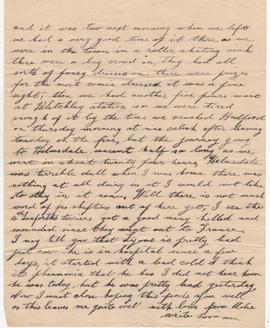 and it was two next morning when we left
we had a very good time of it there as we
were in the town in a roller skating rink
there were a big crowd in they had all
sorts of fancy dresses on, there were prizes
for the most comic dressed it was a fine
sight, then we had another five miles walk
at Bletchley station so we were tired
enough of it by the time we reached Bedford
on thursday morning at nine oclock after leaving
tuesday at five, but the journey going
to Helmsdale wasent half so long as we
went in about twenty four hours, Helmsdale
was terrible dull when I was home there was
nothing at all doing in it I would not like
to stay in it now, Well there is not much
word of us shifting out of here yet, I see the
Seaforths terriers got a good many killed and
wounded since they went out to France.
I may tell you that is pretty bad
just now he is in hospital since a few
days, it started with a bad cold I think
it is pheamonia that he has I did not hear how
he was today, but he was pretty bad yesterday,
Now I must close hoping this finds you well
as this leaves me quite well with love from
write soon